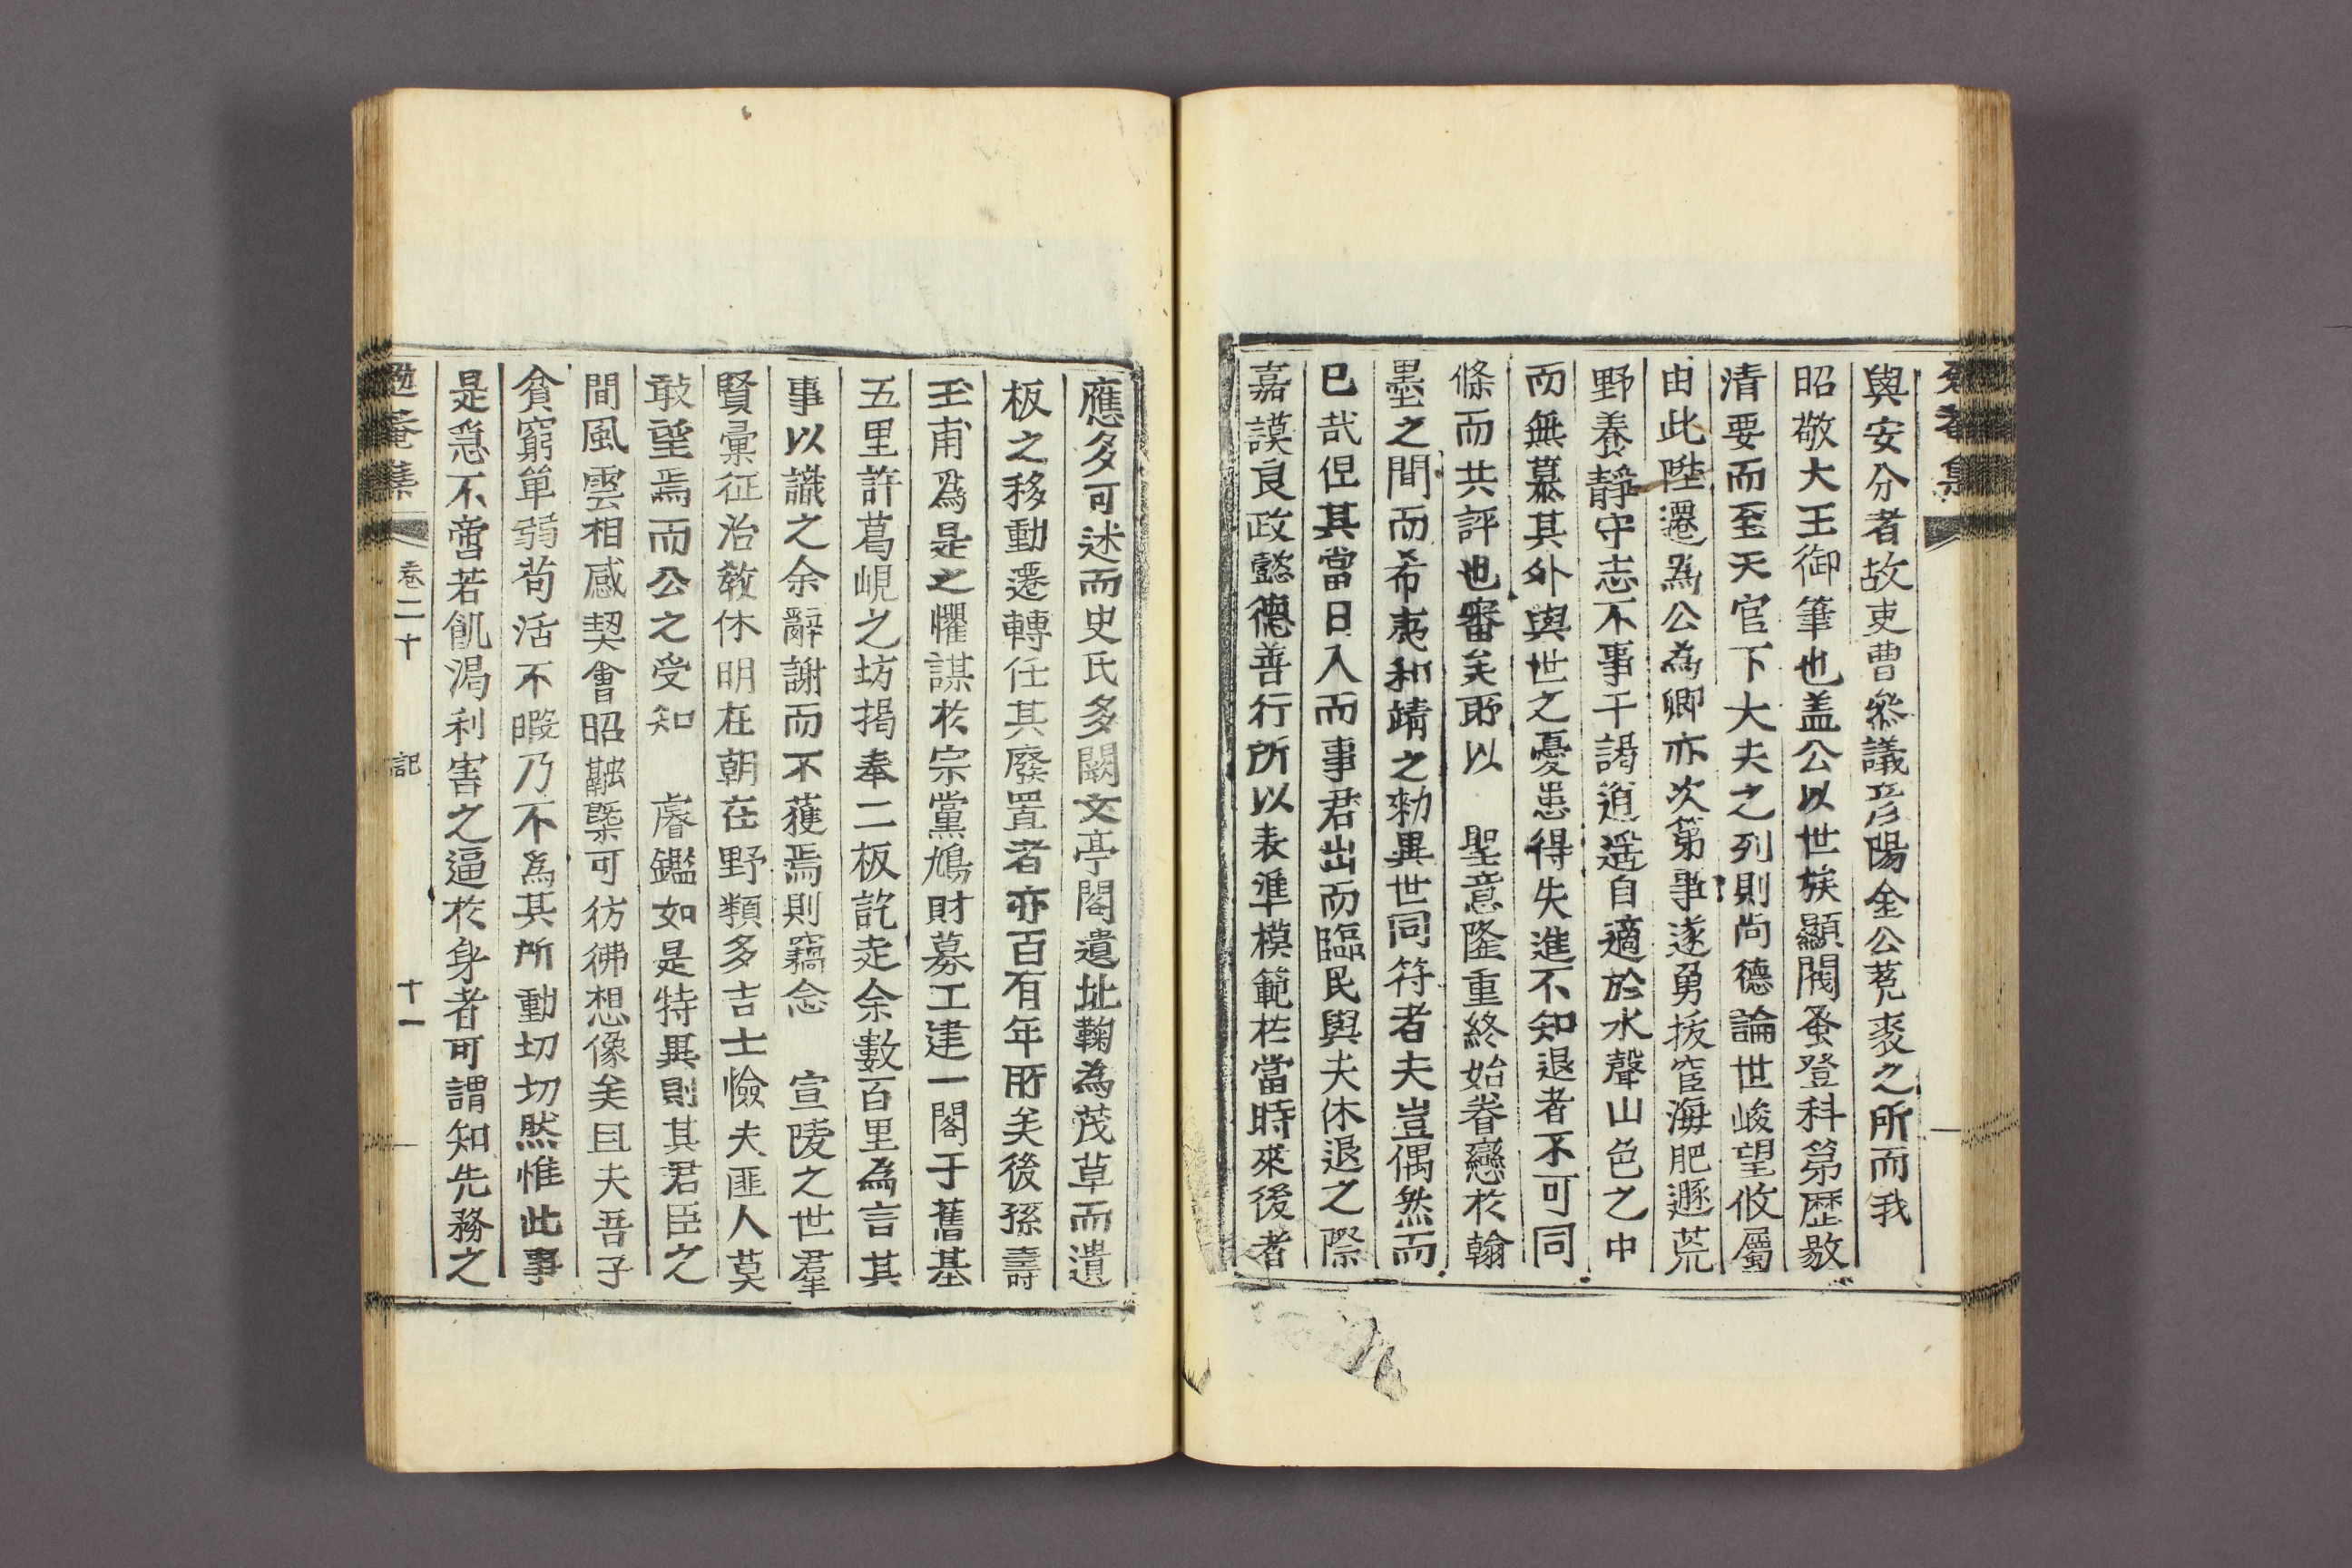 與安分者故吏曹叅議彦陽金公菟裘之所而我
昭敬大王御筆也盖公以世族顯閥蚤登科第歷敭
清要而至天官下大夫之列則尚德論世峻望攸屬
由此陞遷爲公為卿亦次第事遂勇拔宦海肥遯荒
野養靜守志不事干謁逍遥自適於水聲山色之中
而無慕其外與世之憂患得失進不知退者不可同
條而共評也審矣所以　聖意隆重終始眷戀於翰
墨之間而希夷和靖之勑異世同符者夫豈偶然而
已哉但其當日入而事君出而臨民與夫休退之際
嘉謨良政懿德善行所以表準模範於當時來後者
應多可述而史氏多闕文亭閣遺址鞠為茂草而遺
板之移動遷轉任其廢置者亦百有年所矣後孫壽
玉甫爲是之懼謀於宗黨鳩財募工建一閣于舊基
五里許葛峴之坊揭奉二板訖走余數百里為言其
事以識之余辭謝而不獲焉則竊念　宣陵之世羣
賢彙征治敎休明在朝在野類多吉士憸夫匪人莫
敢望焉而公之受知　睿鑑如是特異則其君臣之
間風雲相感契會昭融槩可彷彿想像矣且夫吾子
貧窮單弱苟活不暇乃不為其所動切切然惟此事
是急不啻若飢渴利害之逼於身者可謂知先務之
菴集　卷二十　記　十一